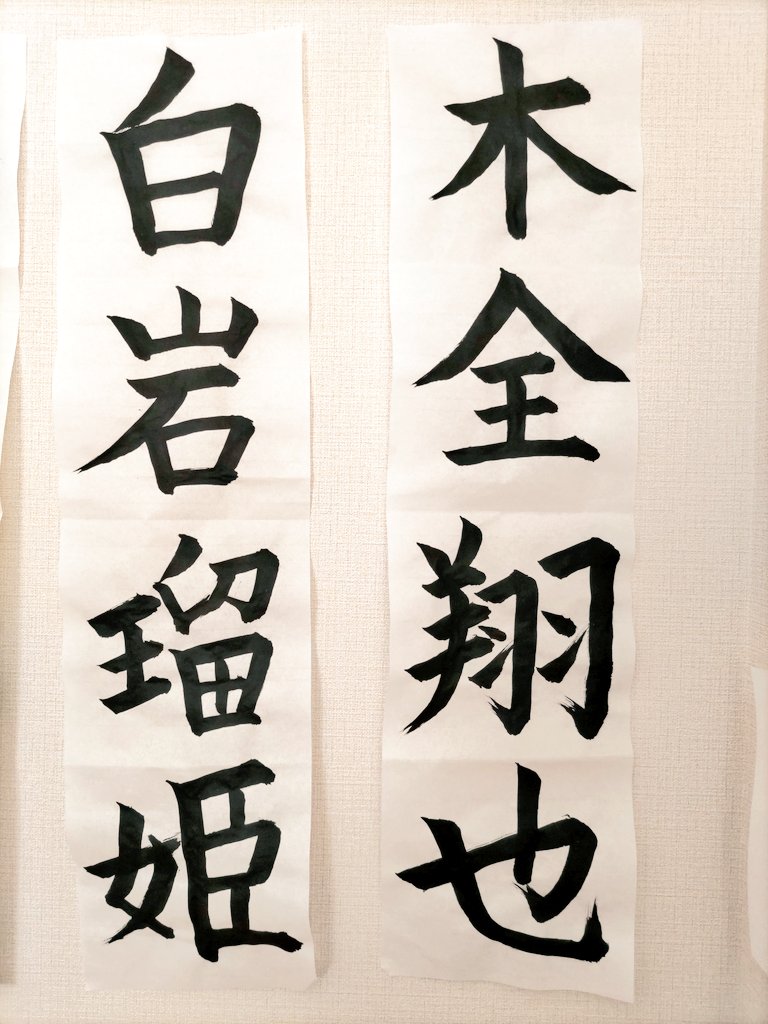 木全翔也
白岩瑠姫